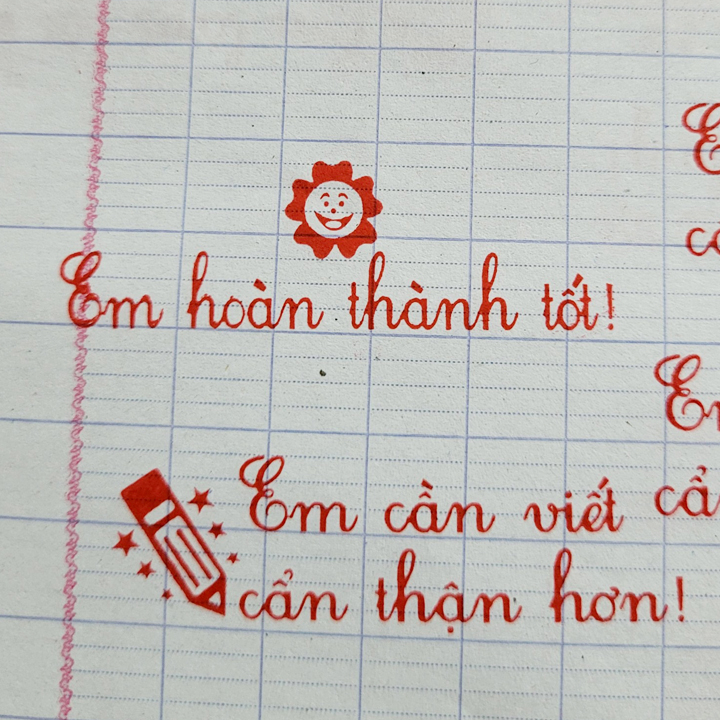 Em hoàn thành tốt!
Em cần viết
cẩn thận hơn!